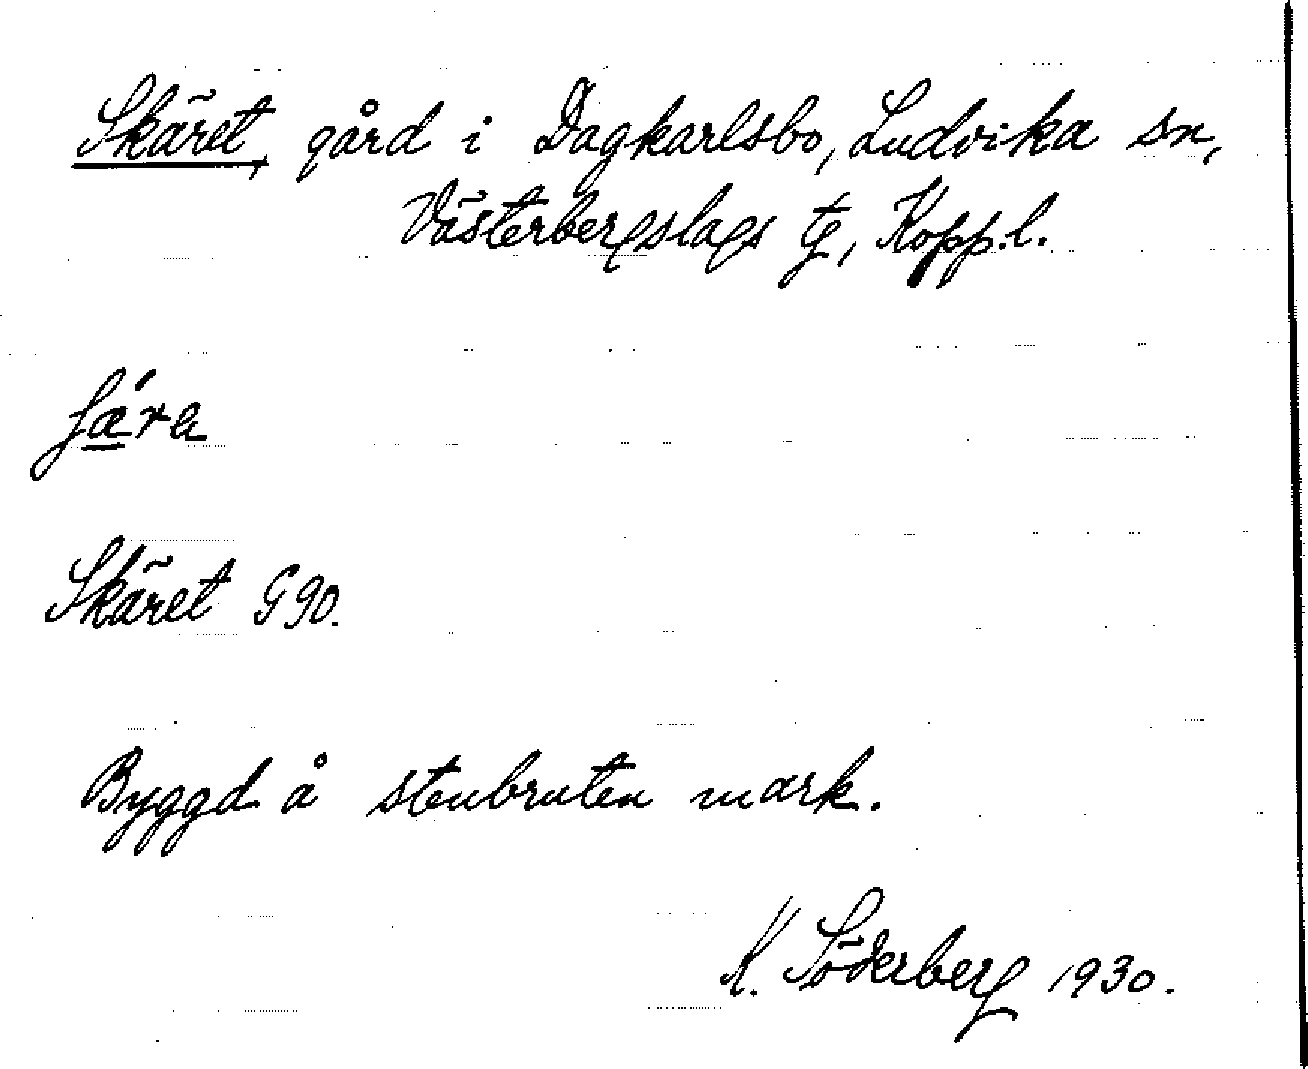 Skäret, gård i Dagkarlsbo, Ludvika sn,
Västerbergslags tg, Kopp.l.
ʃǽra
Skäret G 90.
Byggd å stenbruten mark.
K. Söderberg 1930.